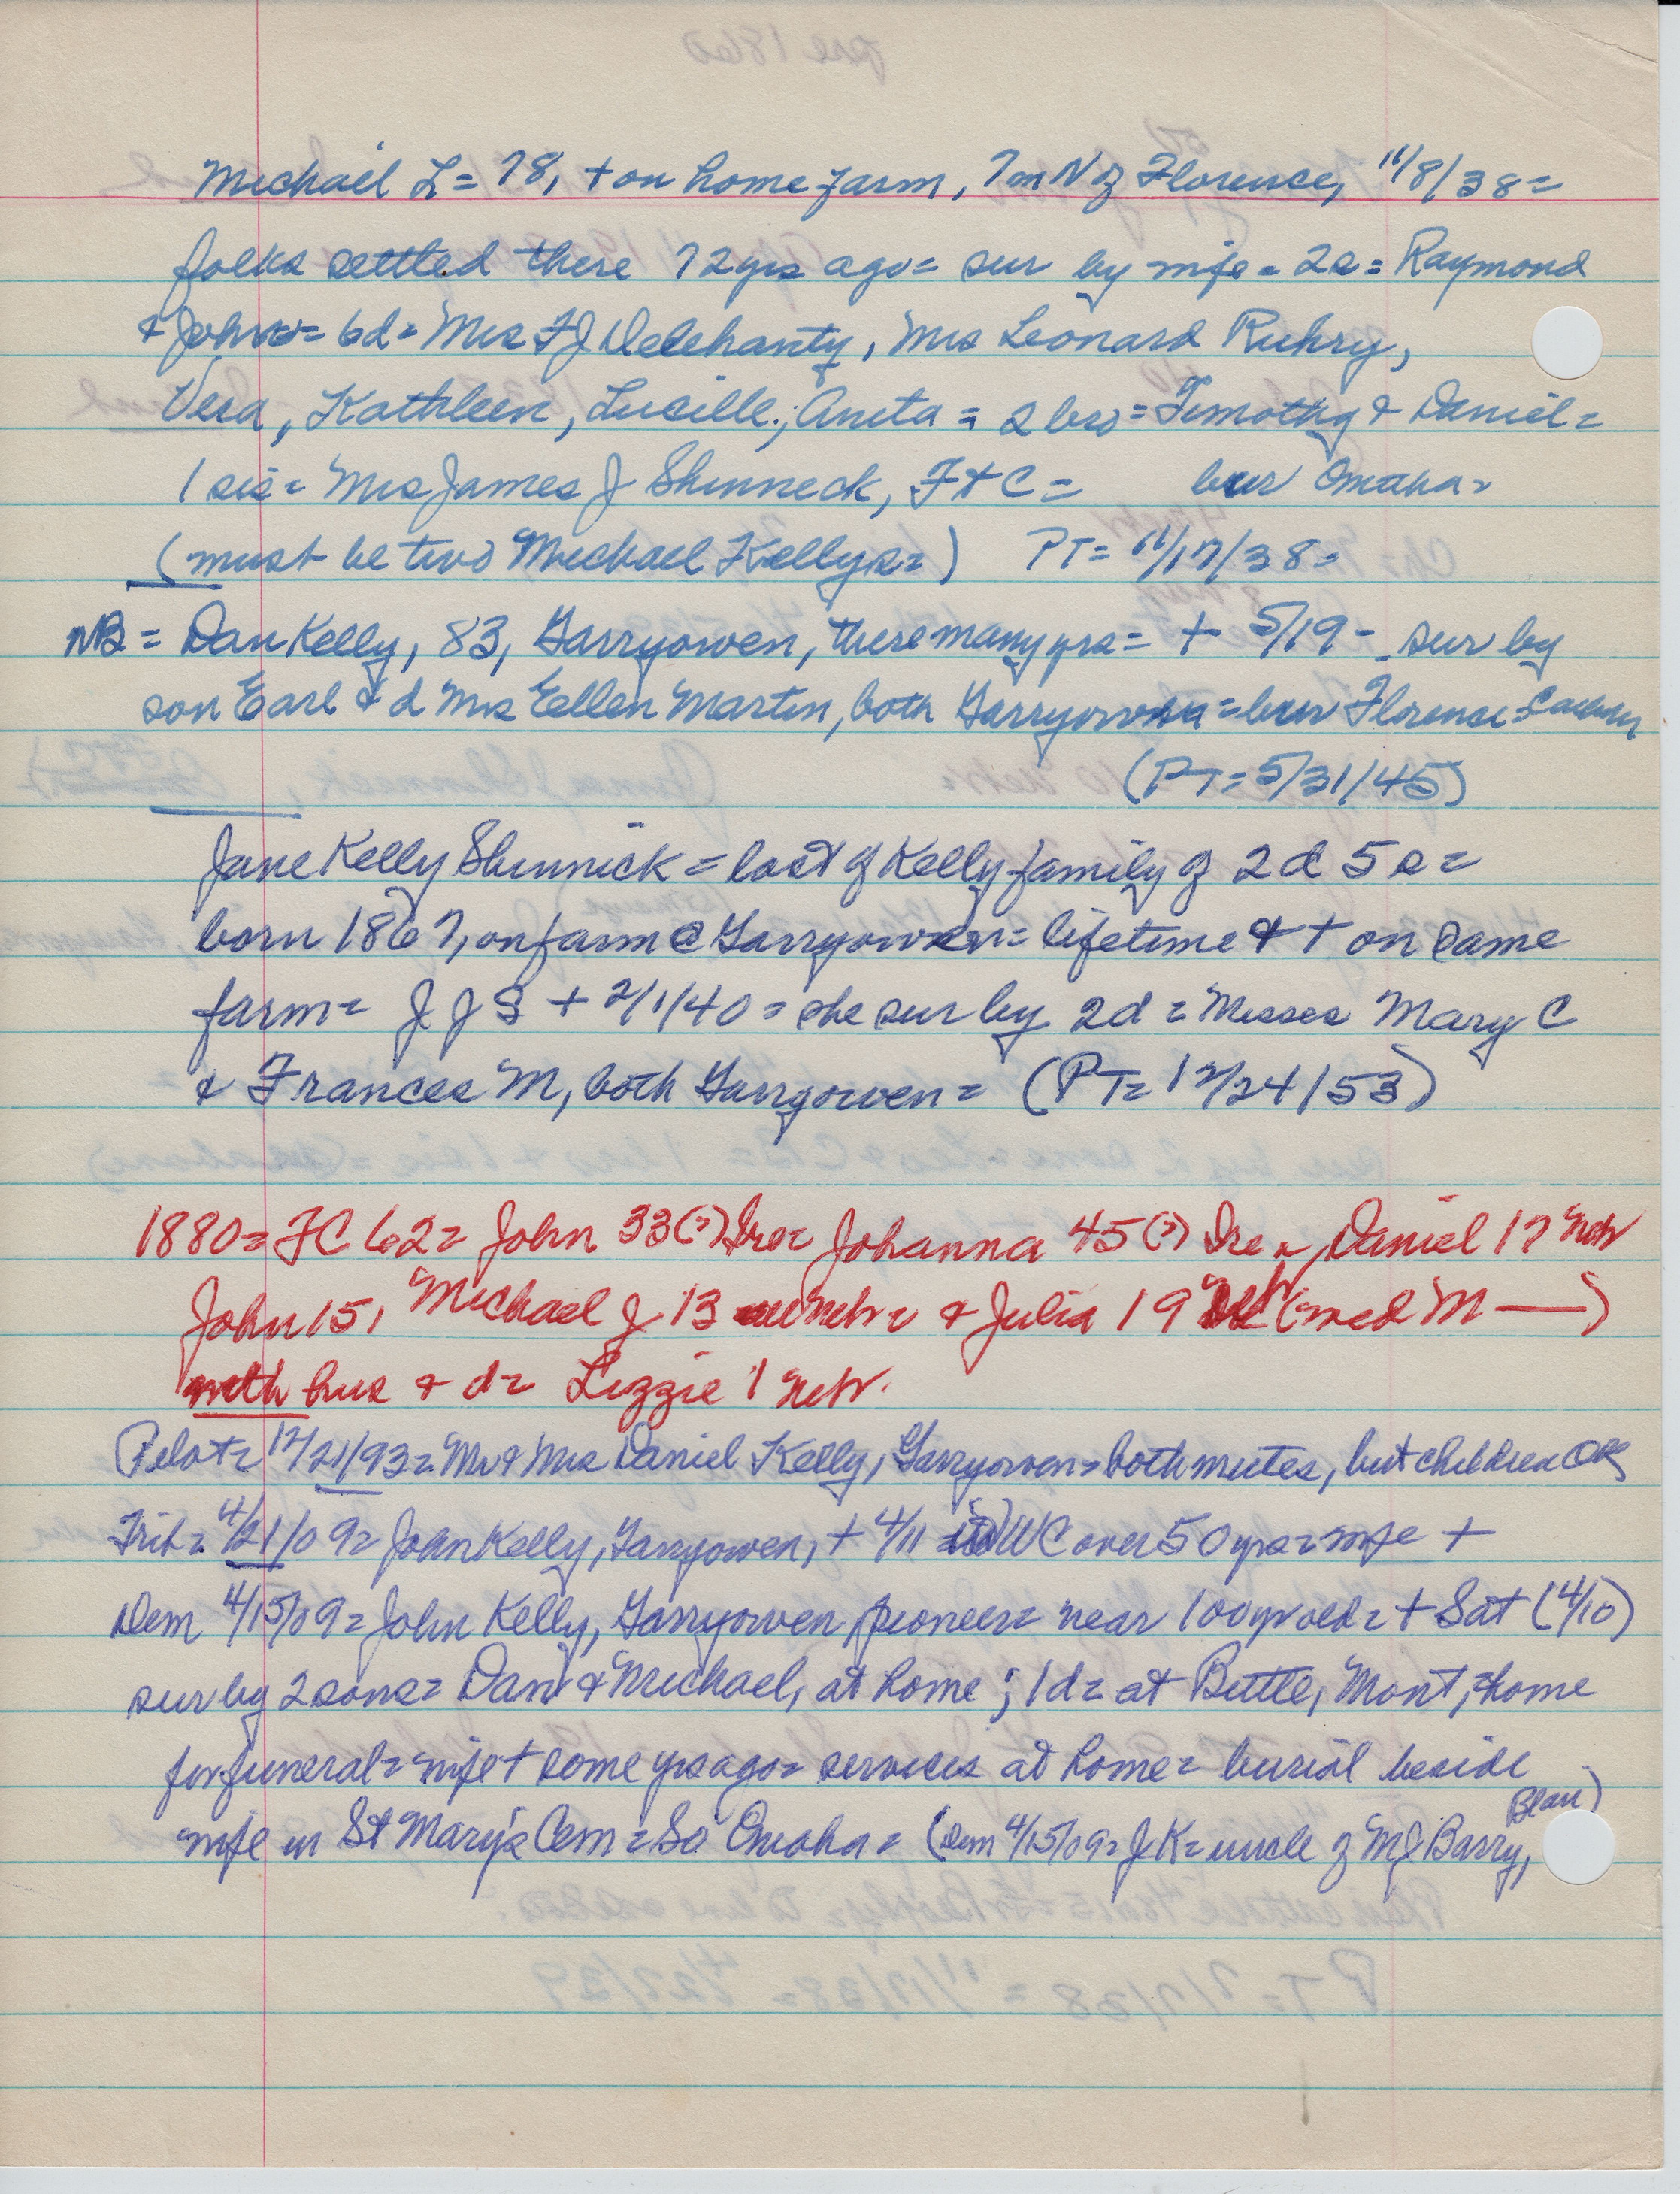 Michael L = 78, + on home farm, 7 m N of Florence, 11/8/38 =
folks settled there 72 yrs ago = sur by wife = 2s = Raymond
& John = 6d = Mrs F J Delehanty, Mrs Leonard Ruhry,
Vera, Kathleen, Lucille, & Aneta = 2 bro = Timothy & Daniel =
1 sis = Mrs James J Shinneck, Ft C = bur Omaha =
(must be two Michael Kellys =) PT = 11/17/38 =
NB = Dan Kelly, 83, Garryowen, there many yrs = + 5/19 - sur by
son Earl & d Mrs Eellen Martin, both Garryowen = bur Florence =
(PT = 5/31/45)
Jane Kelly Shinnick = last of Kelly family of 2d 5s =
born 1867, on farm @ Garryowen = lifetime & + on same
farm = J J S + 2/1/40 = she sur by 2d = Misses Mary C
& Frances M, both Garryowen = (PT = 12/24/53)
1880 = FC 62 = John 33(?) Ire = Johanna 45(?) Ire =, Daniel 17 Neb
John 15, Michael J 13 all Neb = & Julia 19 Neb (med M —)
with hus & d = Lizzie 1 Neb.
Pilot = 12/21/93 = Mr & Mrs Daniel Kelly, Garryowen = both mutes, but children OK
Trib = 4/21/09 = John Kelly, Garryowen, + 4/11 in WC over 50 yrs = wife +
Dem 4/15/09 = John Kelly, Garryowen pioneer = near 100 yr old = + Sat (4/10)
sur by 2 sons = Dan & Michael, at home; 1d = at Butte, Mont, = home
for funeral = wife + some yrs ago = services at home = burial beside
wife in St Mary's Cem = So Omaha = (Dem 4/15/09 = J K = uncle of M J Barry, Blair)